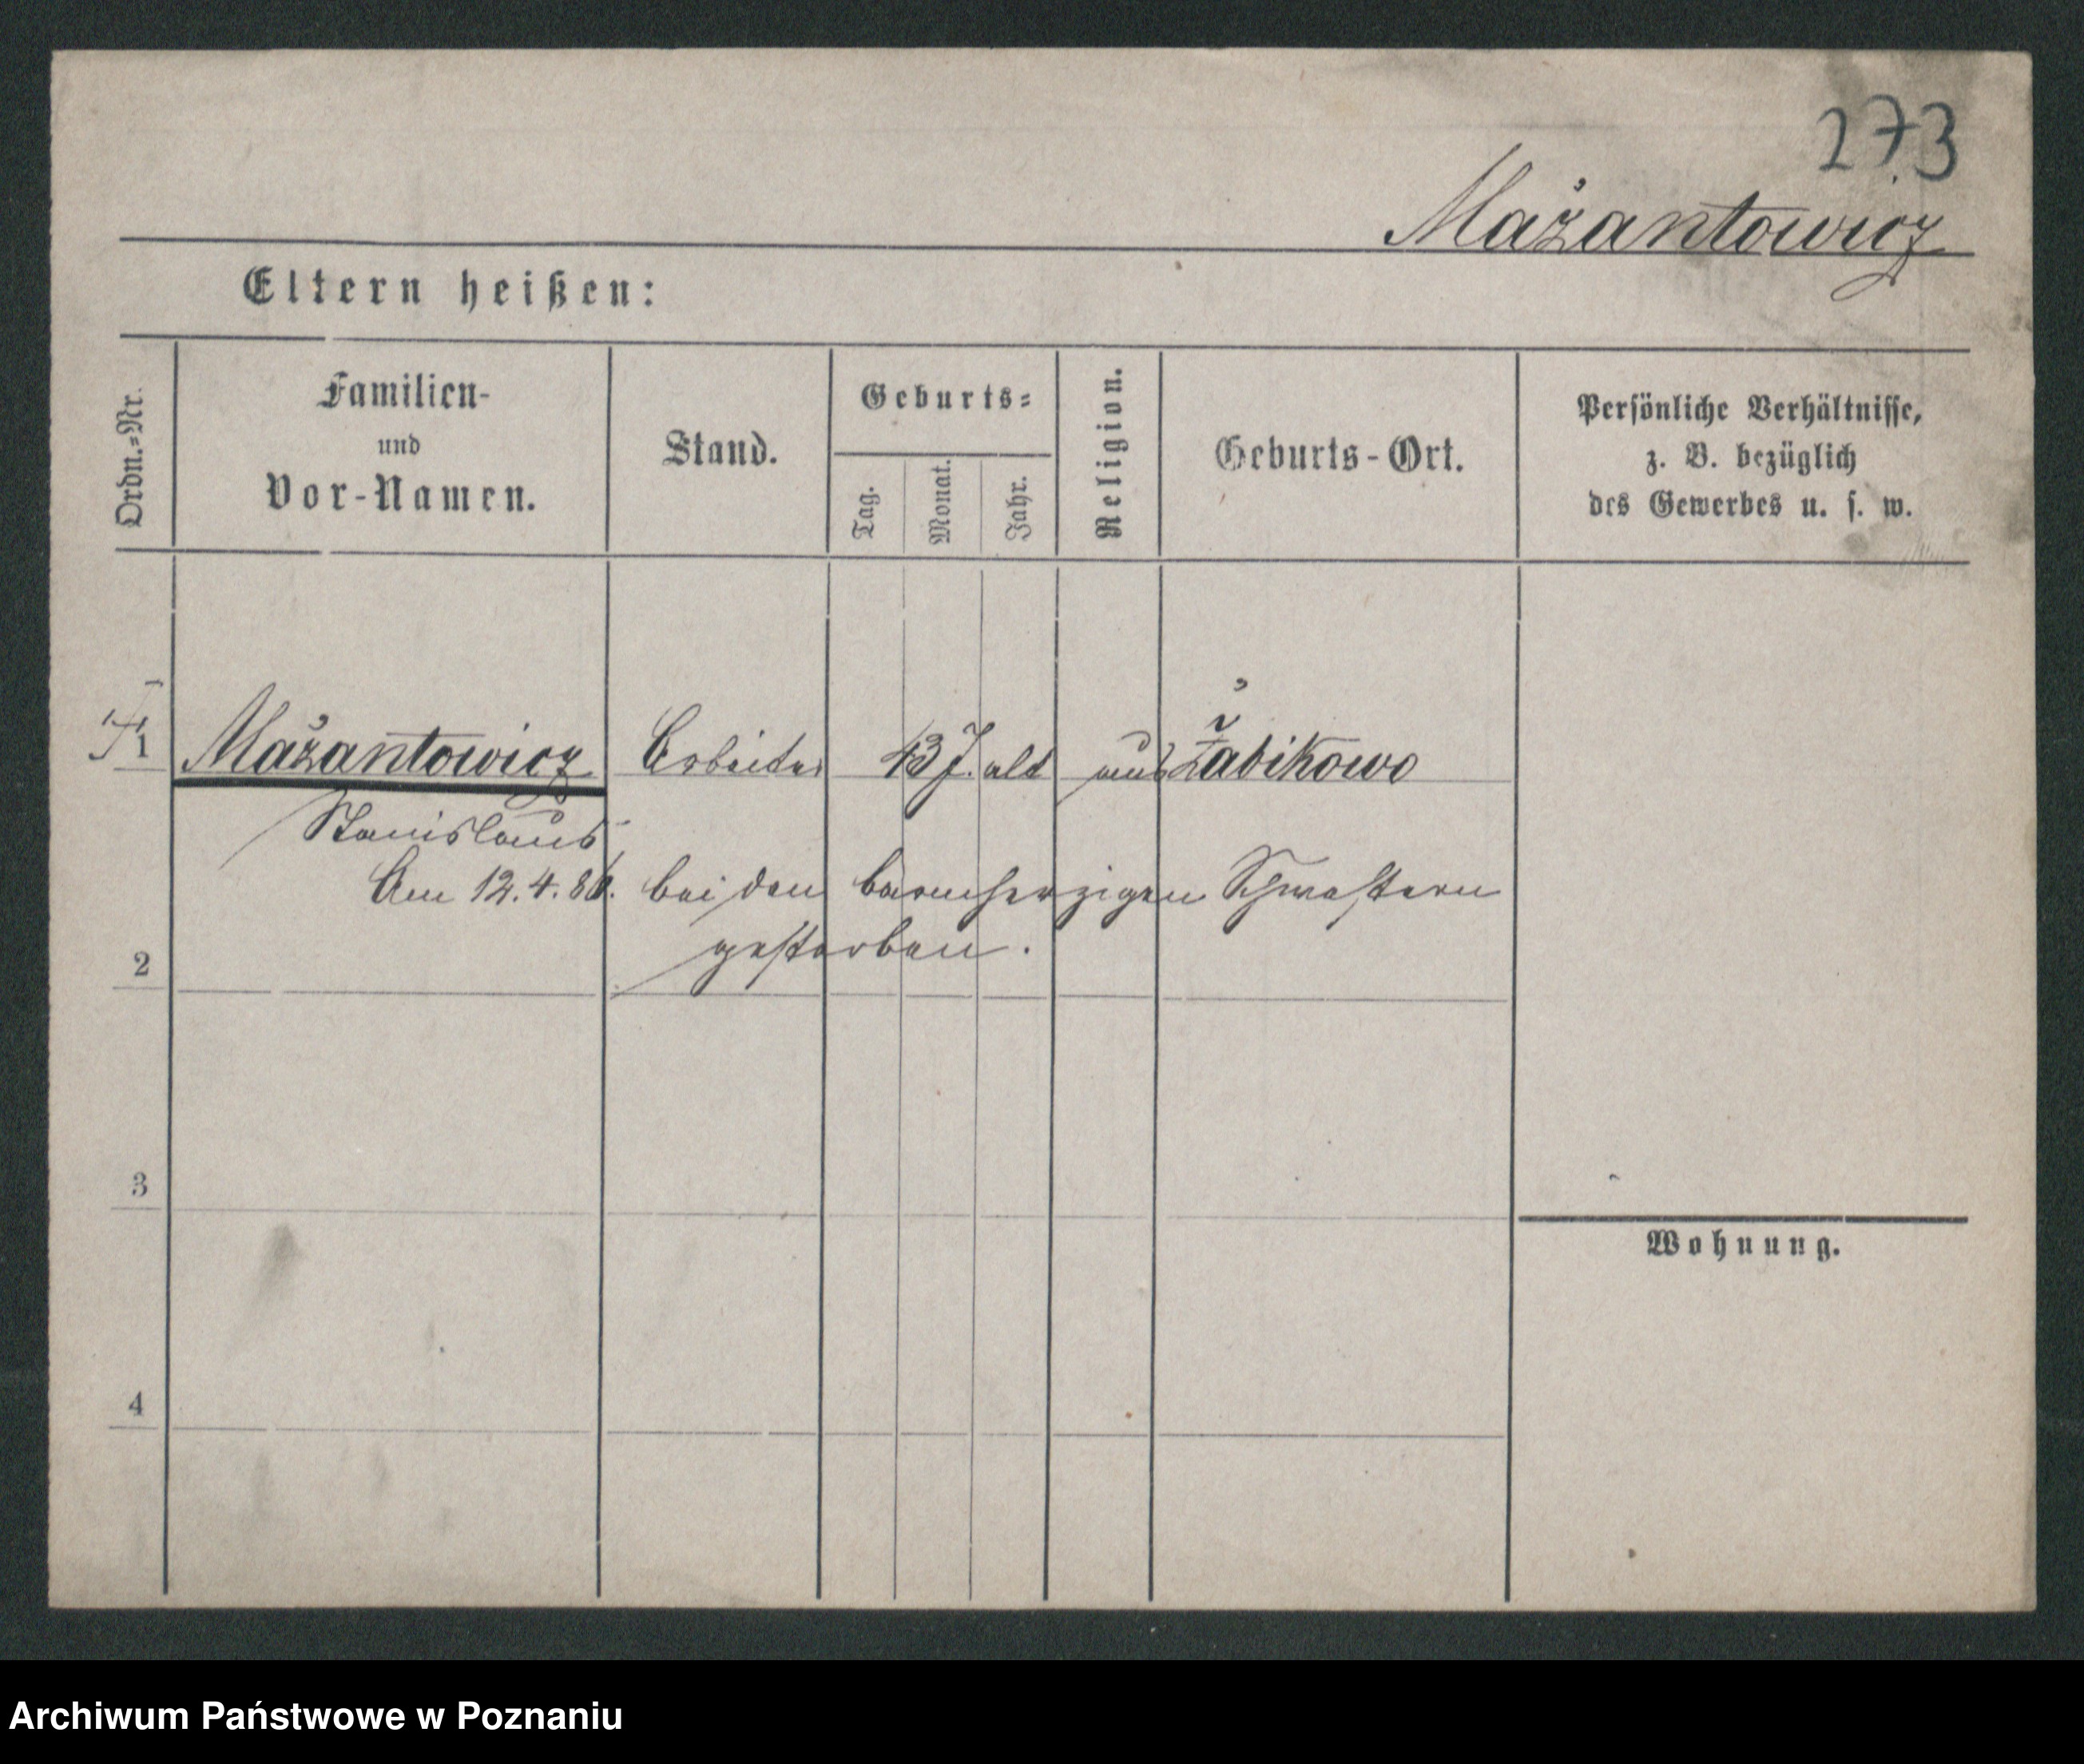 273
Mażantowicz
Eltern heißen:
Ordn.=Nr.
Familien-
und
Vor-Namen.
Stand.
Geburts=
Tag.
Monat.
Jahr.
Religion.
Geburts-Ort.
Persönliche Verhältnisse,
z. B. bezüglich
des Gewerbes u. s. w.
1 Mażantowicz Arbeiter 43 J. alt aus Żabikowo
Stanislaus
Am 12.4.86. bei den barmherzigen Schwestern
gestorben.
2
3
Wohnung.
4
Archiwum Państwowe w Poznaniu